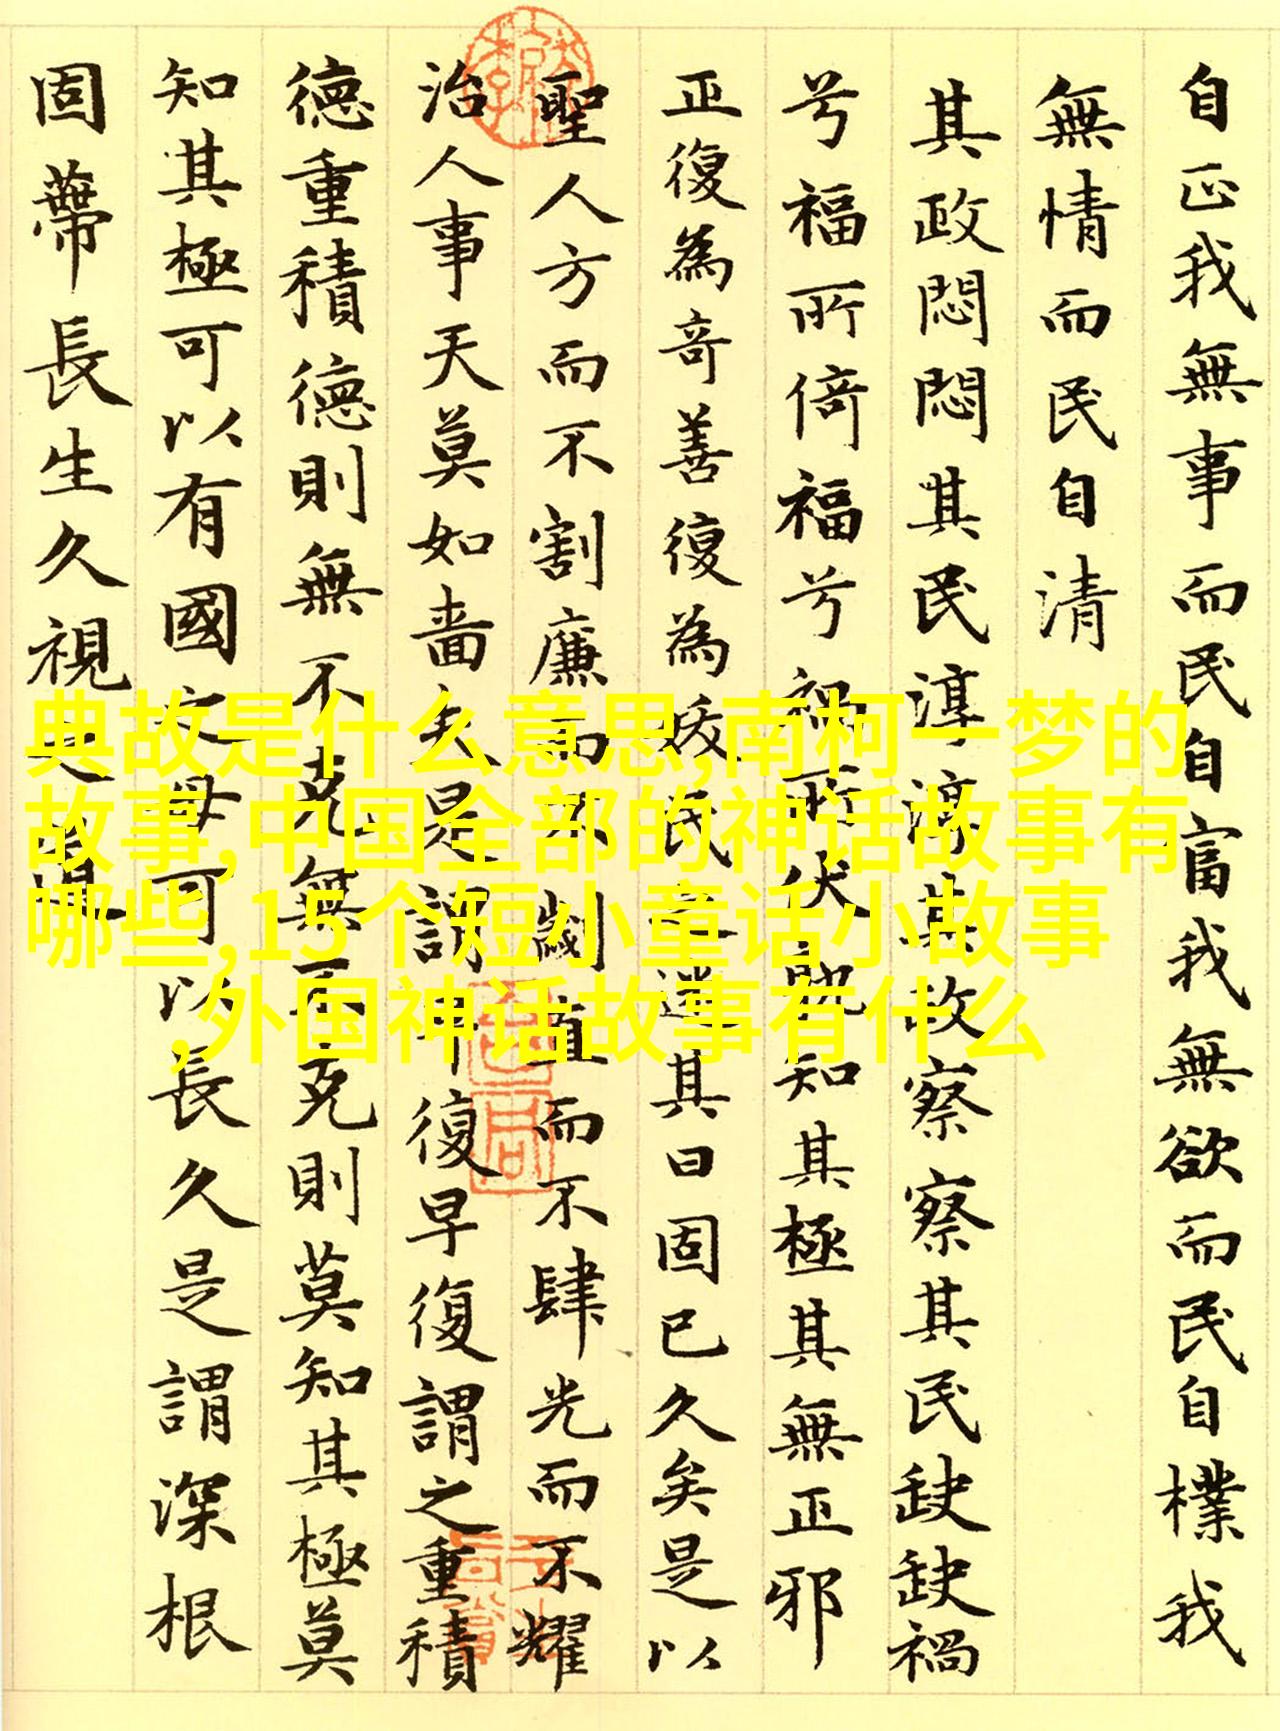 自正我無事而民自富我無欲而民自樸我
無情而民自清
其政悶悶其民淳淳其政察察其民缺缺禍
兮福所倚福兮禍所伏孰知其極其無正邪
正復為奇善復為妖民之迷其日固已久矣是以
聖人方而不割廉而不劌直而不肆光而不耀
治人事天莫如嗇夫是謂早復早復謂之重積
德重積德則無不克無不克則莫知其極莫
知其極可以有國之母可以長久是謂深根
固蔕長生久視之道
典故是什么意思,南柯一梦的
故事,中国全部的神话故事有
哪些,15个短小童话小故事
,外国神话故事有什么